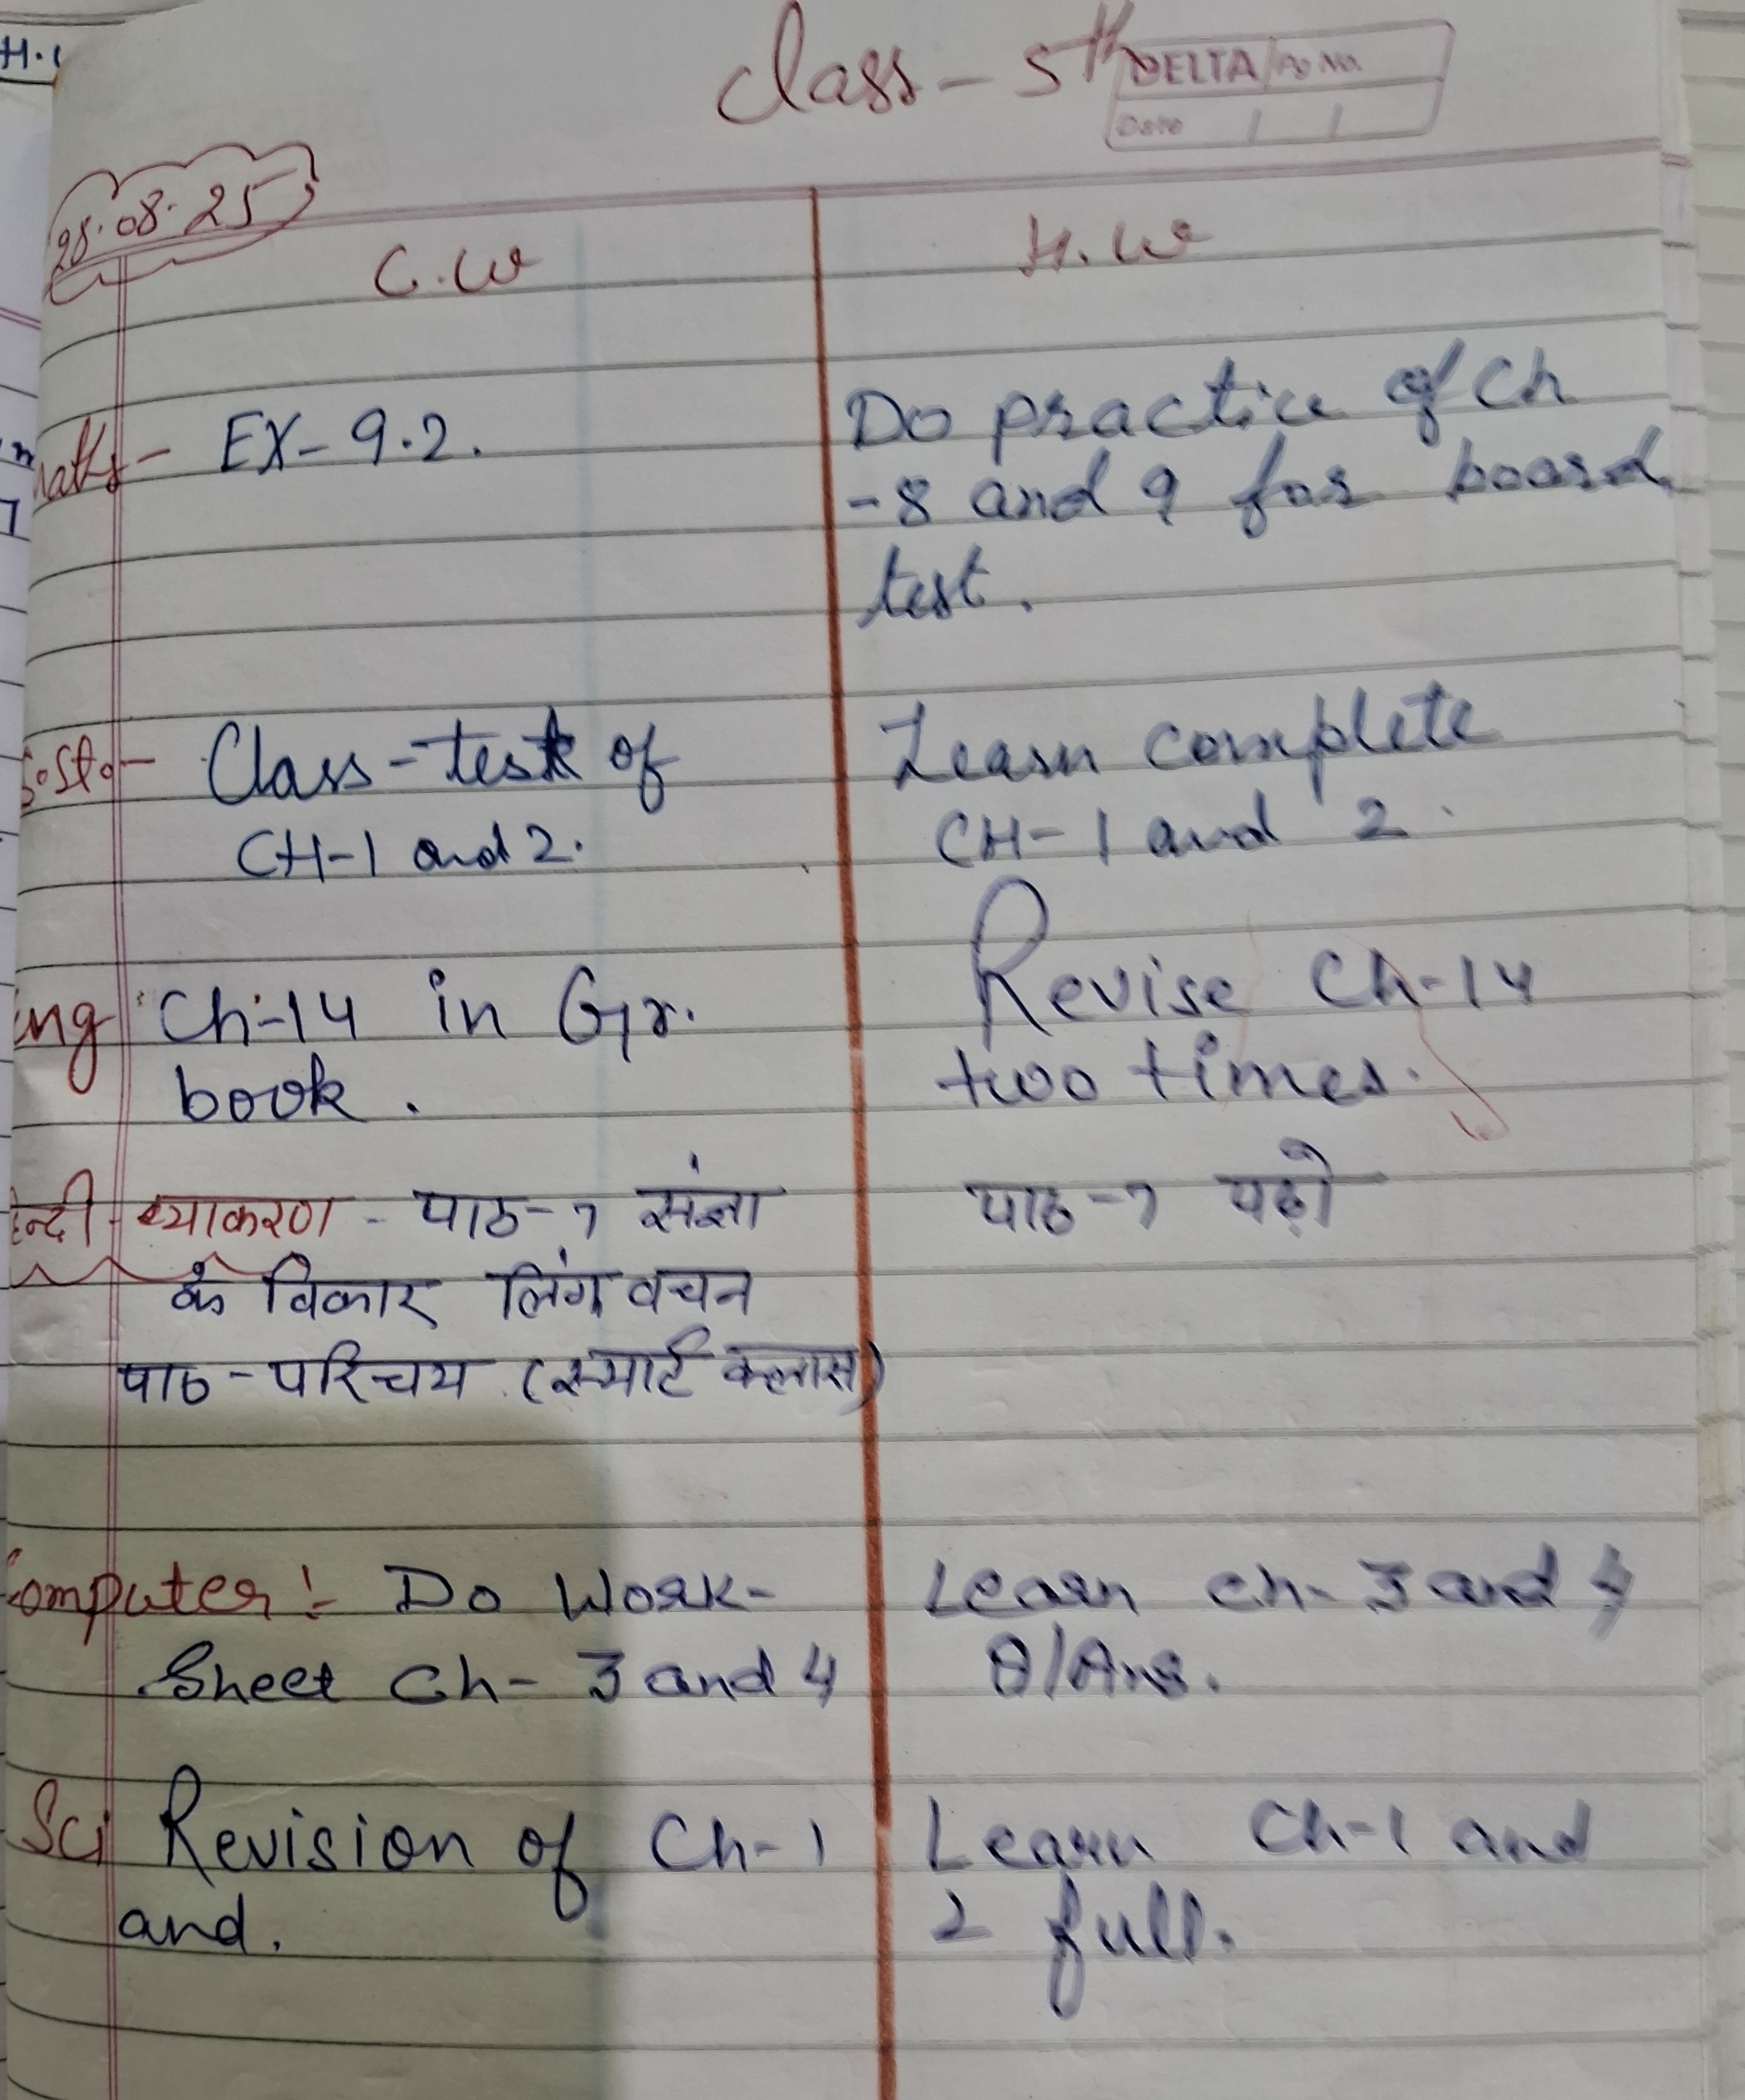 Class - 5th
DELTA Pg No.
Date
28.08.25
C.W
H.W
Maths - EX - 9.2.
Do practice of Ch
- 8 and 9 for board
test.
S.St. - Class - test of
CH-1 and 2.
Learn complete
CH-1 and 2.
Eng Ch-14 in Gr.
book.
Revise Ch-14
two times.
हिन्दी - व्याकरण - पाठ-7 संज्ञा
के विकार लिंग वचन
पाठ-परिचय (स्मार्ट क्लास)
पाठ-7 पढ़ो
Computer :- Do Work-
Sheet Ch- 3 and 4
Learn Ch- 3 and 4
Q/Ans.
Sci Revision of Ch-1
and.
Learn Ch-1 and
2 full.